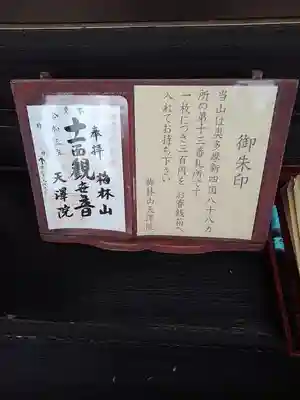 御朱印
当山は奥多摩新四国八十八カ
所の第十三番札所です
一枚につき三百円をお賽銭箱へ
入れてお持ち下さい
梅林山天澤院
奉拝 梅林山
十一面観世音
天澤院